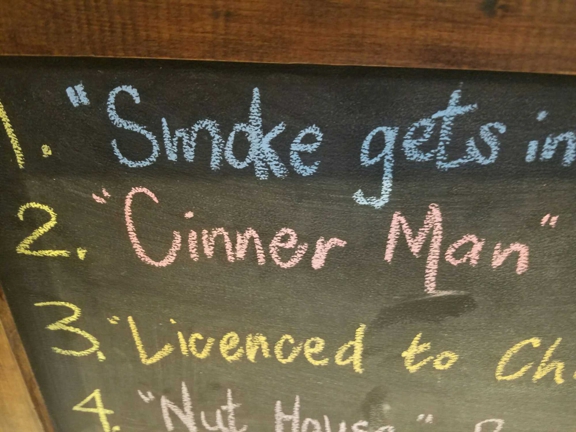 1. "Smoke gets in
2. "Cinner Man"
3. "Licenced to Ch
4. "Nut House"